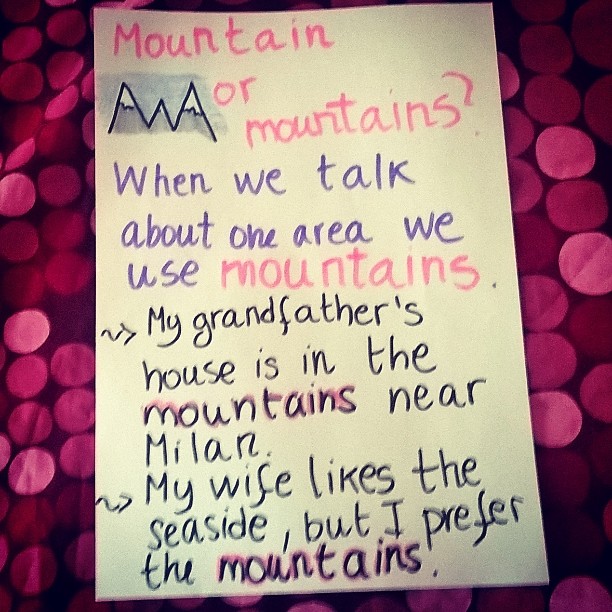 Mountain
or
mountains?
When we talk
about one area we
use mountains.
~> My grandfather's
house is in the
mountains near
Milan.
~> My wife likes the
seaside, but I prefer
the mountains.